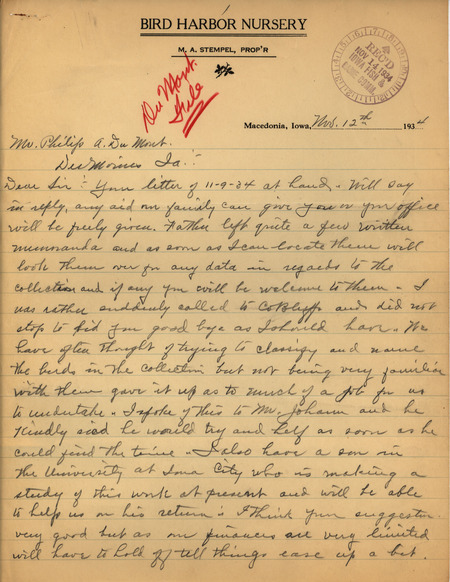 BIRD HARBOR NURSERY
M. A. STEMPEL, PROP'R
REC'D
NOV 14 1934
IOWA FISH &
GAME COMM.
Du Mont
File
Macedonia, Iowa, Nov. 12th 1934
Mr. Philip A. Du Mont.
Des Moines Ia.:
Dear Sir: Your letter of 11-9-34 at hand. Will say
in reply, any aid our family can give you or your office
will be freely given. Father left quite a few written
memoranda and as soon as I can locate them will
look them over for any data in regards to the
collection and if any you will be welcome to them. I
was rather suddenly called to CoBluffs and did not
stop to bid you good bye as I should have. We
have often thought of trying to classify and name
the birds in the collection but not being very familiar
with them gave it up as to much of a job for us
to undertake. I spoke of this to Mr. Johann and he
kindly said he would try and help as soon as he
could find the time. I also have a son in
the University at Iowa City who is making a
study of this work at present and will be able
to help us on his return. I think your suggestion
very good but as our finances are very limited
will have to hold off till things ease up a bit.